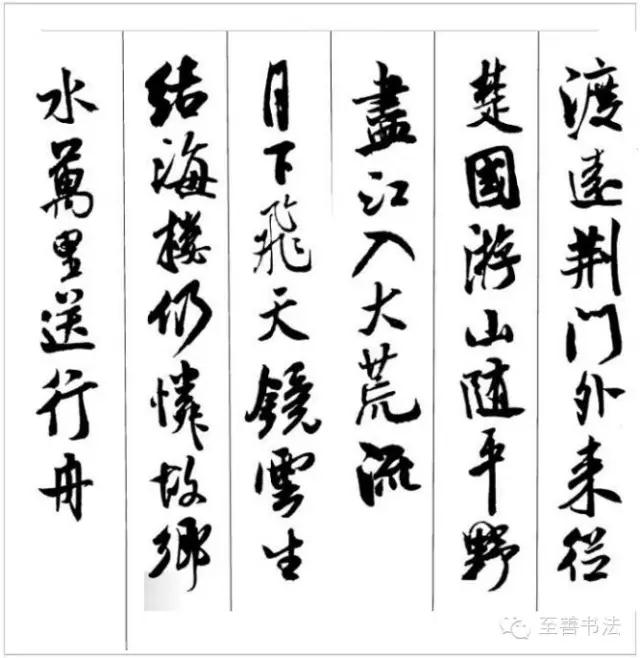 渡遠荆门外来從
楚國游山随平野
盡江入大荒流
月下飛天鏡雲生
结海楼仍憐故鄉
水萬里送行舟
至善书法